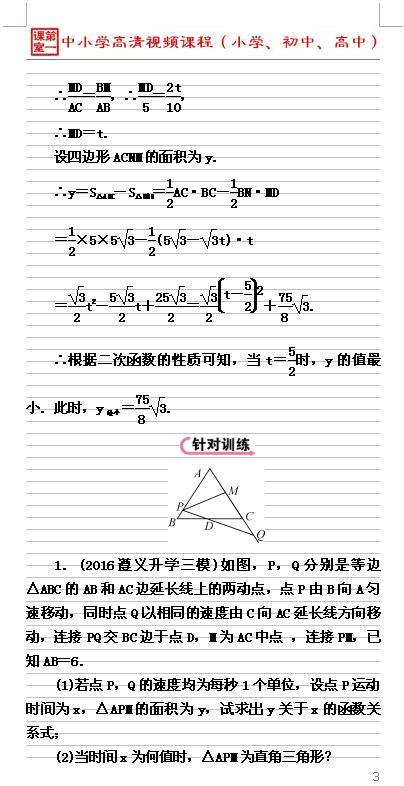 课第
室一
中小学高清视频课程（小学、初中、高中）
∴MD/AC=BM/AB，∴MD/5=2t/10，
∴MD=t.
设四边形ACNM的面积为y.
∴y=S△ABC-S△MBN=1/2AC·BC-1/2BN·MD
=1/2×5×5√3-1/2(5√3-√3t)·t
=√3/2t²-5√3/2t+25√3/2=√3/2(t-5/2)²+75/8√3.
∴根据二次函数的性质可知，当t=5/2时，y的值最
小. 此时，y最小=75/8√3.
针对训练
A
M
P
B
D
C
Q
1. (2016遵义升学三模)如图，P，Q分别是等边
△ABC的AB和AC边延长线上的两动点，点P由B向A匀
速移动，同时点Q以相同的速度由C向AC延长线方向移
动，连接PQ交BC边于点D，M为AC中点 ，连接PM，已
知AB=6.
(1)若点P，Q的速度均为每秒1个单位，设点P运动
时间为x，△APM的面积为y，试求出y关于x的函数关
系式;
(2)当时间x为何值时，△APM为直角三角形?
3